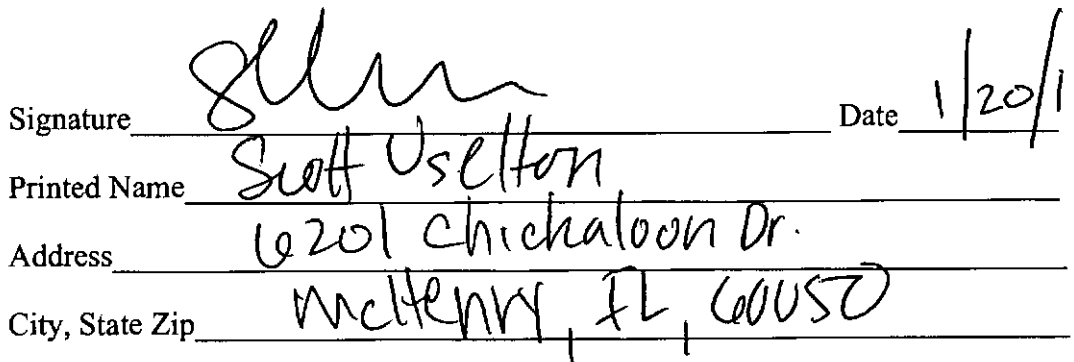 Signature Date 1/20/1
Printed Name Scott Uselton
Address 6201 Chickaloon Dr.
City, State Zip McHenry, IL, 60050